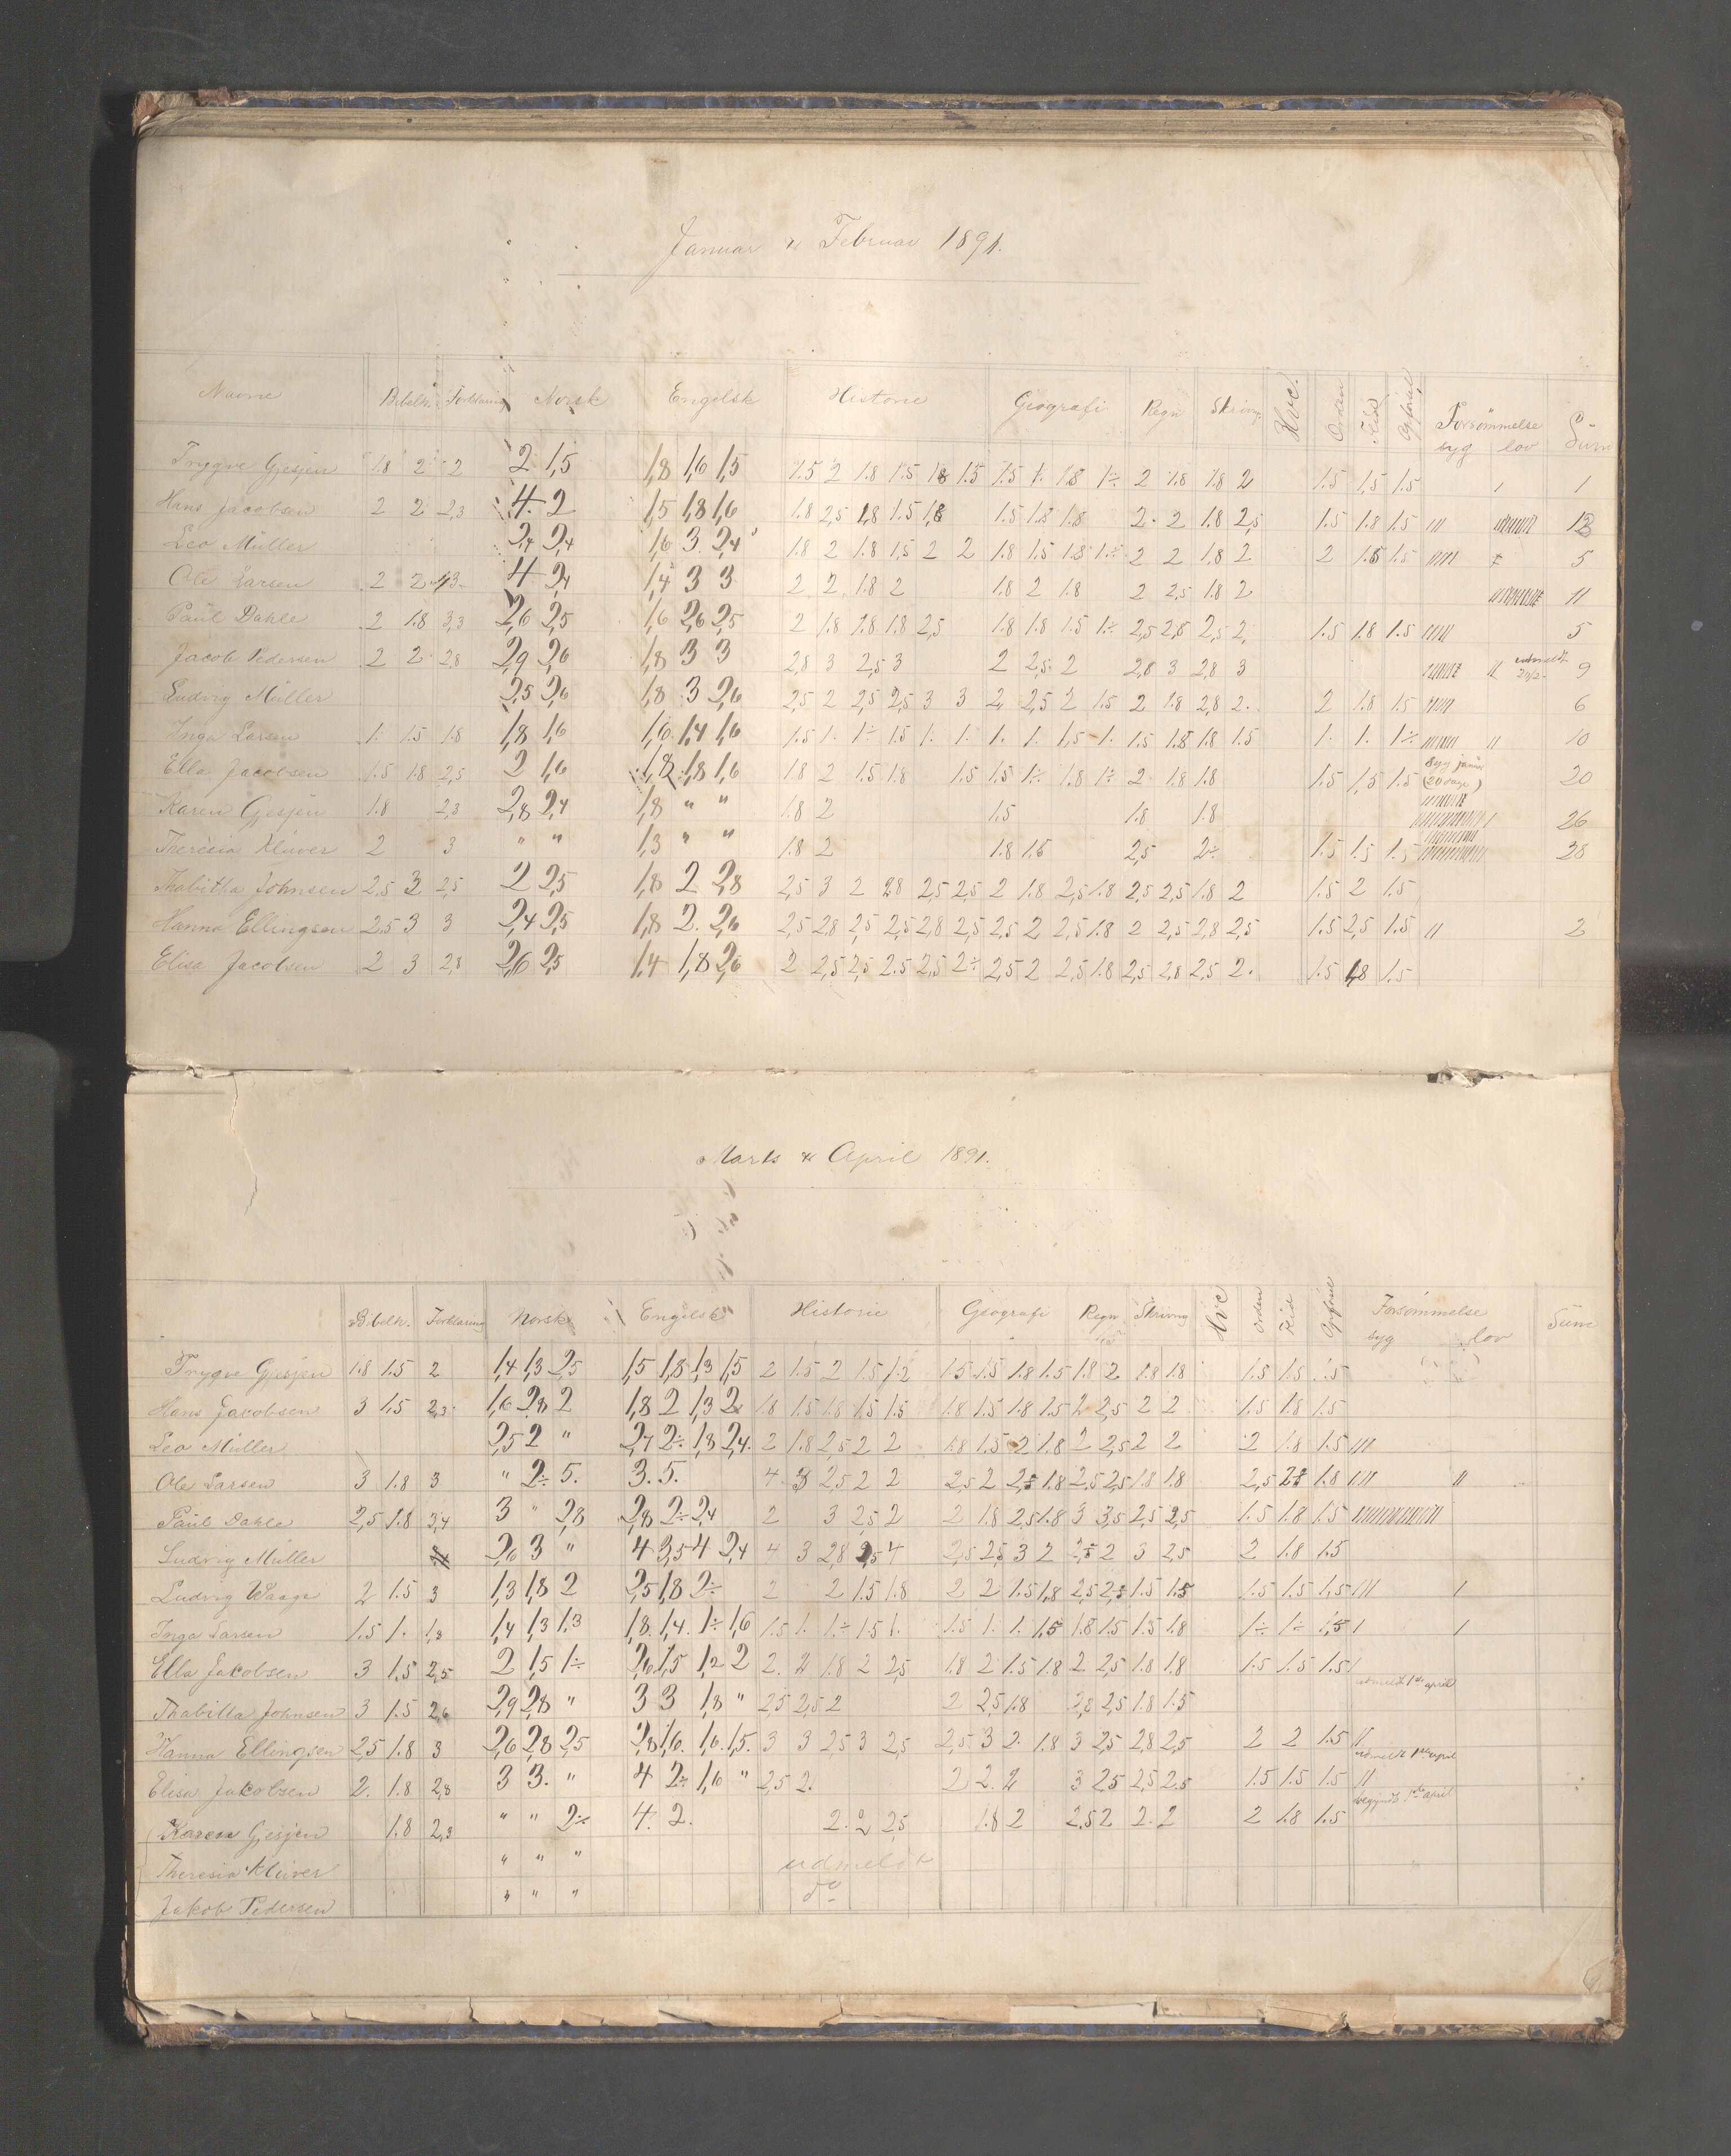 Januar & Februar 1891.
Navne Bibelh. Forklaring Norsk Engelsk Historie Geografi Regn Skrivng Hvc. Orden Flid Opførsel Forsömmelse syg lov Sum
Trygve Gjesjen 1.8 2 2 2 1,5 1,8 1,6 1,5 1.5 2 1.8 1.5 1.8 1.5 1.5 1. 1.8 1÷ 2 1.8 1.8 2 1.5 1,5 1.5 1
Hans Jacobsen 2 2 2,3 4. 2 1,5 1,8 1,6 1.8 2,5 1,8 1.5 1,8 1.5 1.8 1.8 2. 2 1.8 2,5 1.5 1.8 1.5
Leo Müller 2,4 2,4 1,6 3. 2,4 1.8 2 1.8 1,5 2 2 1.8 1.5 1.8 1.÷ 2 2 1.8 2 2 1.5 5
Ole Larsen 2 2 4 2,4 1,4 3 3 2 2 1.8 2 1.8 2 1.8 2 2,5 1.8 2 11
Paul Dahle 2 1.8 3,3 2,6 2,5 1,6 2,6 2,5 2 1.8 1.8 1.8 2,5 1.8 1.8 1.5 1.÷ 2,5 2,8 2,5 2, 1.5 1.8 1.5 5
Jacob Pedersen 2 2 2,8 2,9 2,6 1,8 3 3 2,8 3 2,5 3 2 2,5 2 2,8 3 2,8 3 udmeldt 9
Ludvig Müller 2,5 2,6 1,8 3 2,6 2,5 2 2,5 2,5 3 3 2 2,5 2 1.5 2 1.8 2,8 2. 2 1.8 1.5 6
Inga Larsen 1. 1.5 1.8 1,8 1,6 1,6. 1,4 1,6 1.5 1. 1÷ 1.5 1. 1. 1. 1. 1,5 1. 1.5 1.8 1.8 1.5 1. 1. 1÷ 10
Ella Jacobsen 1.5 1.8 2,5 2 1,6 1,8 1,8 1,6 1.8 2 1.5 1.8 1.5 1.5 1÷ 1.8 1÷ 2 1.8 1.8 1.5 1,5 1.5 syg januar (20 dage) 20
Karen Gjesjen 1.8 2,3 2,8 2,4 1,8 " " 1.8 2 1.5 1.8 1.8 26
Theresia Kluver 2 3 " " 1,3 " " 1.8 2 1.8 1.5 2,5 2÷ 1.5 1.5 1.5 28
Thabitha Johnsen 2,5 3 2,5 2 2,5 1,8 2 2,8 2,5 3 2 2,8 2,5 2,5 2 1.8 2,5 1.8 2,5 2,5 1.8 2 1.5 2 1.5
Hanna Ellingsen 2,5 3 3 2,4 2,5 1,8 2. 2,6 2,5 2,8 2,5 2,5 2,8 2,5 2,5 2 2,5 1.8 2 2,5 2,8 2,5 1.5 2,5 1.5 " 2
Elisa Jacobsen 2 3 2,8 2,6 2,5 1,4 1,8 2,6 2 2,5 2,5 2.5 2,5 2÷ 2,5 2 2,5 1.8 2,5 2,8 2,5 2. 1.5 1,8 1.5
Marts & April 1891.
Bibelh. Forklaring Norsk Engelsk Historie Geografi Regn Skrivng Hvc Orden Flid Opførsel Forsømmelse syg lov Sum
Trygve Gjesjen 1.8 1.5 2 1,4 1,3 2,5 1,5 1,8 1,3 1,5 2 1.5 2 1.5 1.5 1.5 1.8 1.5 1.8 2 1.8 1.8 1.5 1.5 1.5
Hans Jacobsen 3 1,5 2,3 1,6 2,8 2 1,8 2 1,3 2 1.8 1.5 1.8 1,5 1.5 1.8 1.5 1.8 1.5 2 2,5 2 2 1.5 1.8 1.5
Leo Müller 2,5 2 " 2,7 2÷ 1,8 2,4. 2 1.8 2,5 2 2 1.8 1.5 2 1.8 2 2,5 2 2 2 1.8 1.5 III
Ole Larsen 3 1.8 3 " 2÷ 5. 3. 5. 4 3 2,5 2 2 2,5 2 1.8 2,5 2,5 1.8 1.8 2,5 1.8 II
Paul Dahle 2,5 1.8 3,4 3 " 2,8 2,8 2÷ 2,4 2 3 2,5 2 2 1.8 2,5 1.8 3 3,5 2,5 2,5 1.5 1.8 1.5
Ludvig Müller 2,6 3 " 4 3,5 4 2,4 4 3 2,8 2,5 4 2,5 2,5 3 2 2 3 2,5 2 1.8 1.5
Ludvig Waage 2 1.5 3 1,3 1,8 2 2,5 1,8 2÷ 2 2 1.5 1.8 2 2 1.5 1,8 2,5 1.5 1.5 1.5 1.5 1,5 III I
Inga Larsen 1.5 1. 1,8 1,4 1,3 1.3 1,8. 1,4. 1÷ 1,6 1.5 1. 1÷ 1.5 1. 1.5 1. 1. 1,5 1.8 1.5 1.5 1.8 1÷ 1÷ 1,5 I I
Ella Jakobsen 3 1.5 2,5 2 1,5 1÷ 2,6 1,5 1,2 2 2. 2 1.8 2 2,5 1.8 2 1.5 1.8 2 2,5 1.8 1.8 1.5 1.5 1.5 I
Thabitta Johnsen 3 1.5 2,6 2,9 2,8 " 3 3 1,8 " 2,5 2,5 2 2 2,5 1.8 2,8 2,5 1.8 1.5 udmeldt 1ste april
Hanna Ellingsen 2,5 1.8 3 2,6 2,8 2,5 2,8 1,6. 1,6. 1,5. 3 3 2,5 3 2,5 2,5 3 2. 1.8 3 2,5 2,8 2,5 2 2 1.5 II
Elisa Jakobsen 2. 1.8 2,8 3 3. " 4 2÷ 1,6 " 2,5 2. 2 2. 2 3 2,5 2,5 2.5 1.5 1.5 1.5 II udmeldt 1ste april
Karen Gjesjen 1.8 2,3 " " 2÷ 4. 2. 2. 2 2,5 1.8 2 2,5 2 2. 2 2 1.8 1.5 begyndt 1ste april
Theresia Kluver " " " udmeldt
Jakob Pedersen " " " do